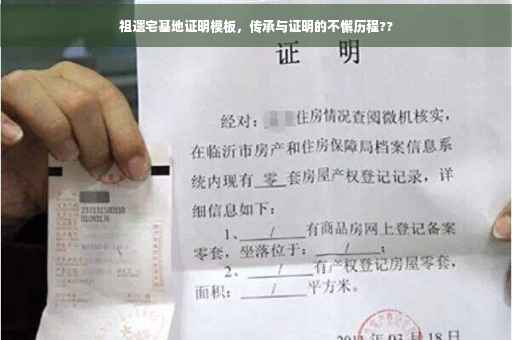 祖遗宅基地证明模板，传承与证明的不懈历程??
证 明
经对：住房情况查阅微机核实，
在临沂市房产和住房保障局档案信息系
统内现有 零 套房屋产权登记记录，详
细信息如下：
1、 / 有商品房网上登记备案
零套，坐落位于： / ；
2、 / 有产权登记房屋零套，
面积： / 平方米。
月 18 日